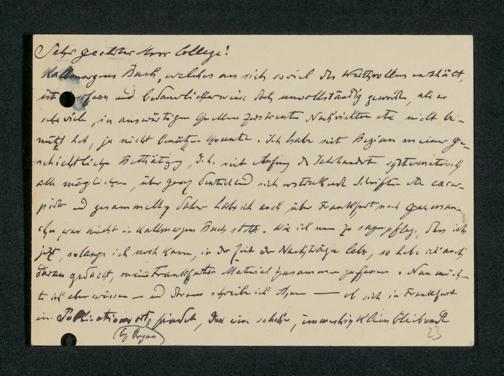 Sehr geehrter Herr College!
Kallmorgens Buch, welches an sich soviel des Wertvollen enthält,
ist und bedauerlicherweise doch unvollständig geworden, als er
sehr viele, in auswärtigen Quellen zerstreute Nachrichten etc nicht be-
nutzt hat, ja nicht benützen konnte. Ich habe seit Beginn meiner ge-
schichtlichen Betätigung, d.h. seit Anfang des Jahrhunderts systematisch
alle möglichen, über ganz Deutschland sich erstreckende Schriften etc excer-
piert und gesammelt, daher habe ich auch über Frankfurt noch
was nicht in Kallmorgens Buch steht. Wie ich nun zu sagen pflege, dass ich
jetzt, solange ich noch kann, in der Zeit der Nachträge lebe, so habe ich auch
daran gedacht, mein Frankfurter Material zusammen zu fassen. Nun möch-
te ich aber wissen – und darum schreibe ich Ihnen – ob sich in Frankfurt
ein Publicationsort findet, das eine
23